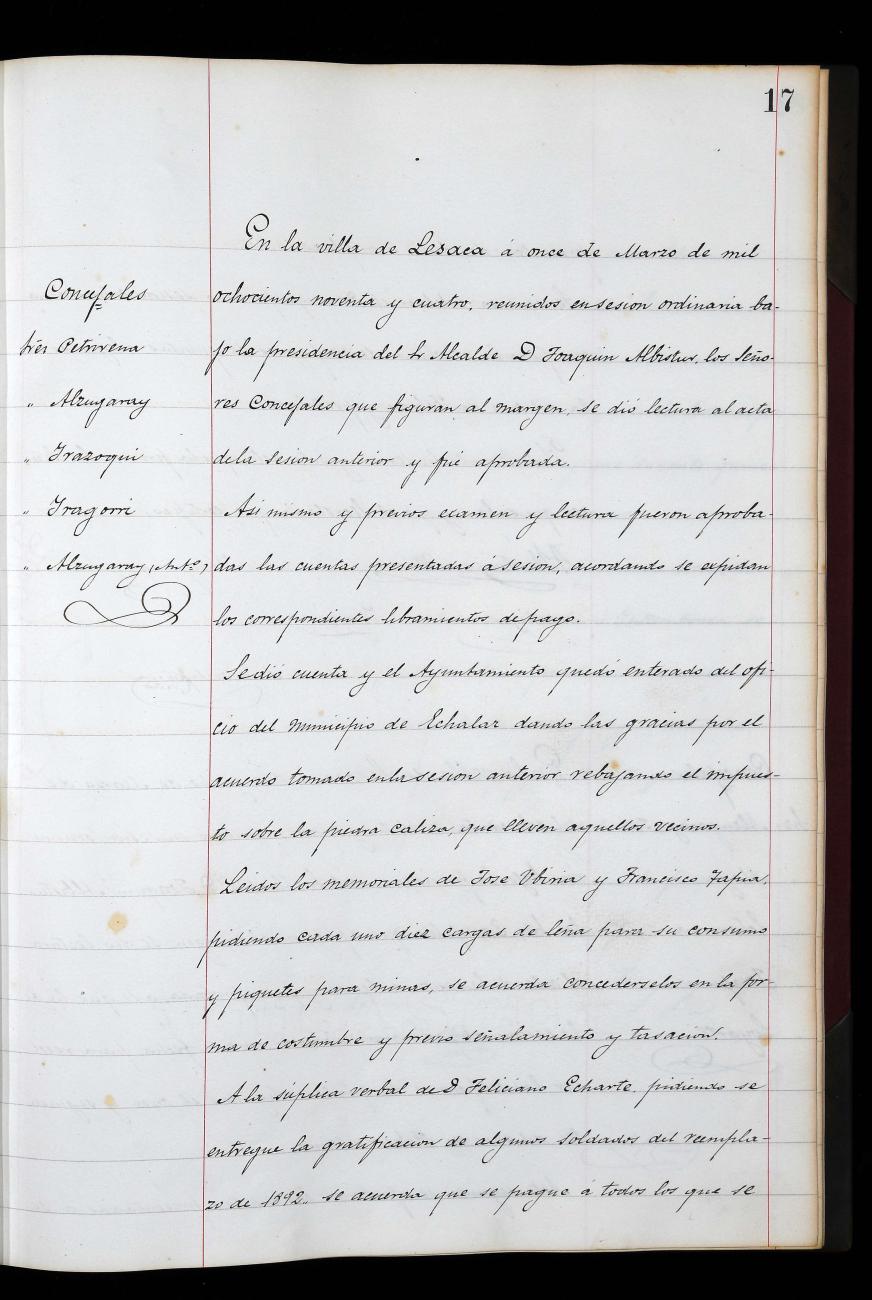 17
En la villa de Lesaca á once de Marzo de mil
Concejales
ochocientos noventa y cuatro, reunidos en sesion ordinaria ba-
Sres Petrirena
jo la presidencia del Sr Alcalde D Joaquin Albistur, los Seño-
" Alzugaray
res Concejales que figuran al margen, se dió lectura al acta
" Irazoqui
de la sesion anterior y fué aprobada.
" Iragorri
Asi mismo y previos ecamen y lectura fueron aproba-
" Alzugaray (Antº)
das las cuentas presentadas á sesion, acordando se expidan
los correspondientes libramientos de pago.
Se dió cuenta y el Ayuntamiento quedó enterado del ofi-
cio del Municipio de Echalar dando las gracias por el
acuerdo tomado en la sesion anterior rebajando el impues-
to sobre la piedra caliza, que lleven aquellos vecinos.
Leidos los memoriales de Jose Ubiria y Francisco Tapia,
pidiendo cada uno diez cargas de leña para su consumo
y piquetes para minas, se acuerda concederselos en la for-
ma de costumbre y previo señalamiento y tasacion.
A la súplica verbal de D Feliciano Echarte, pidiendo se
entregue la gratificacion de algunos soldados del reempla-
zo de 1892., se acuerda que se pague á todos los que se